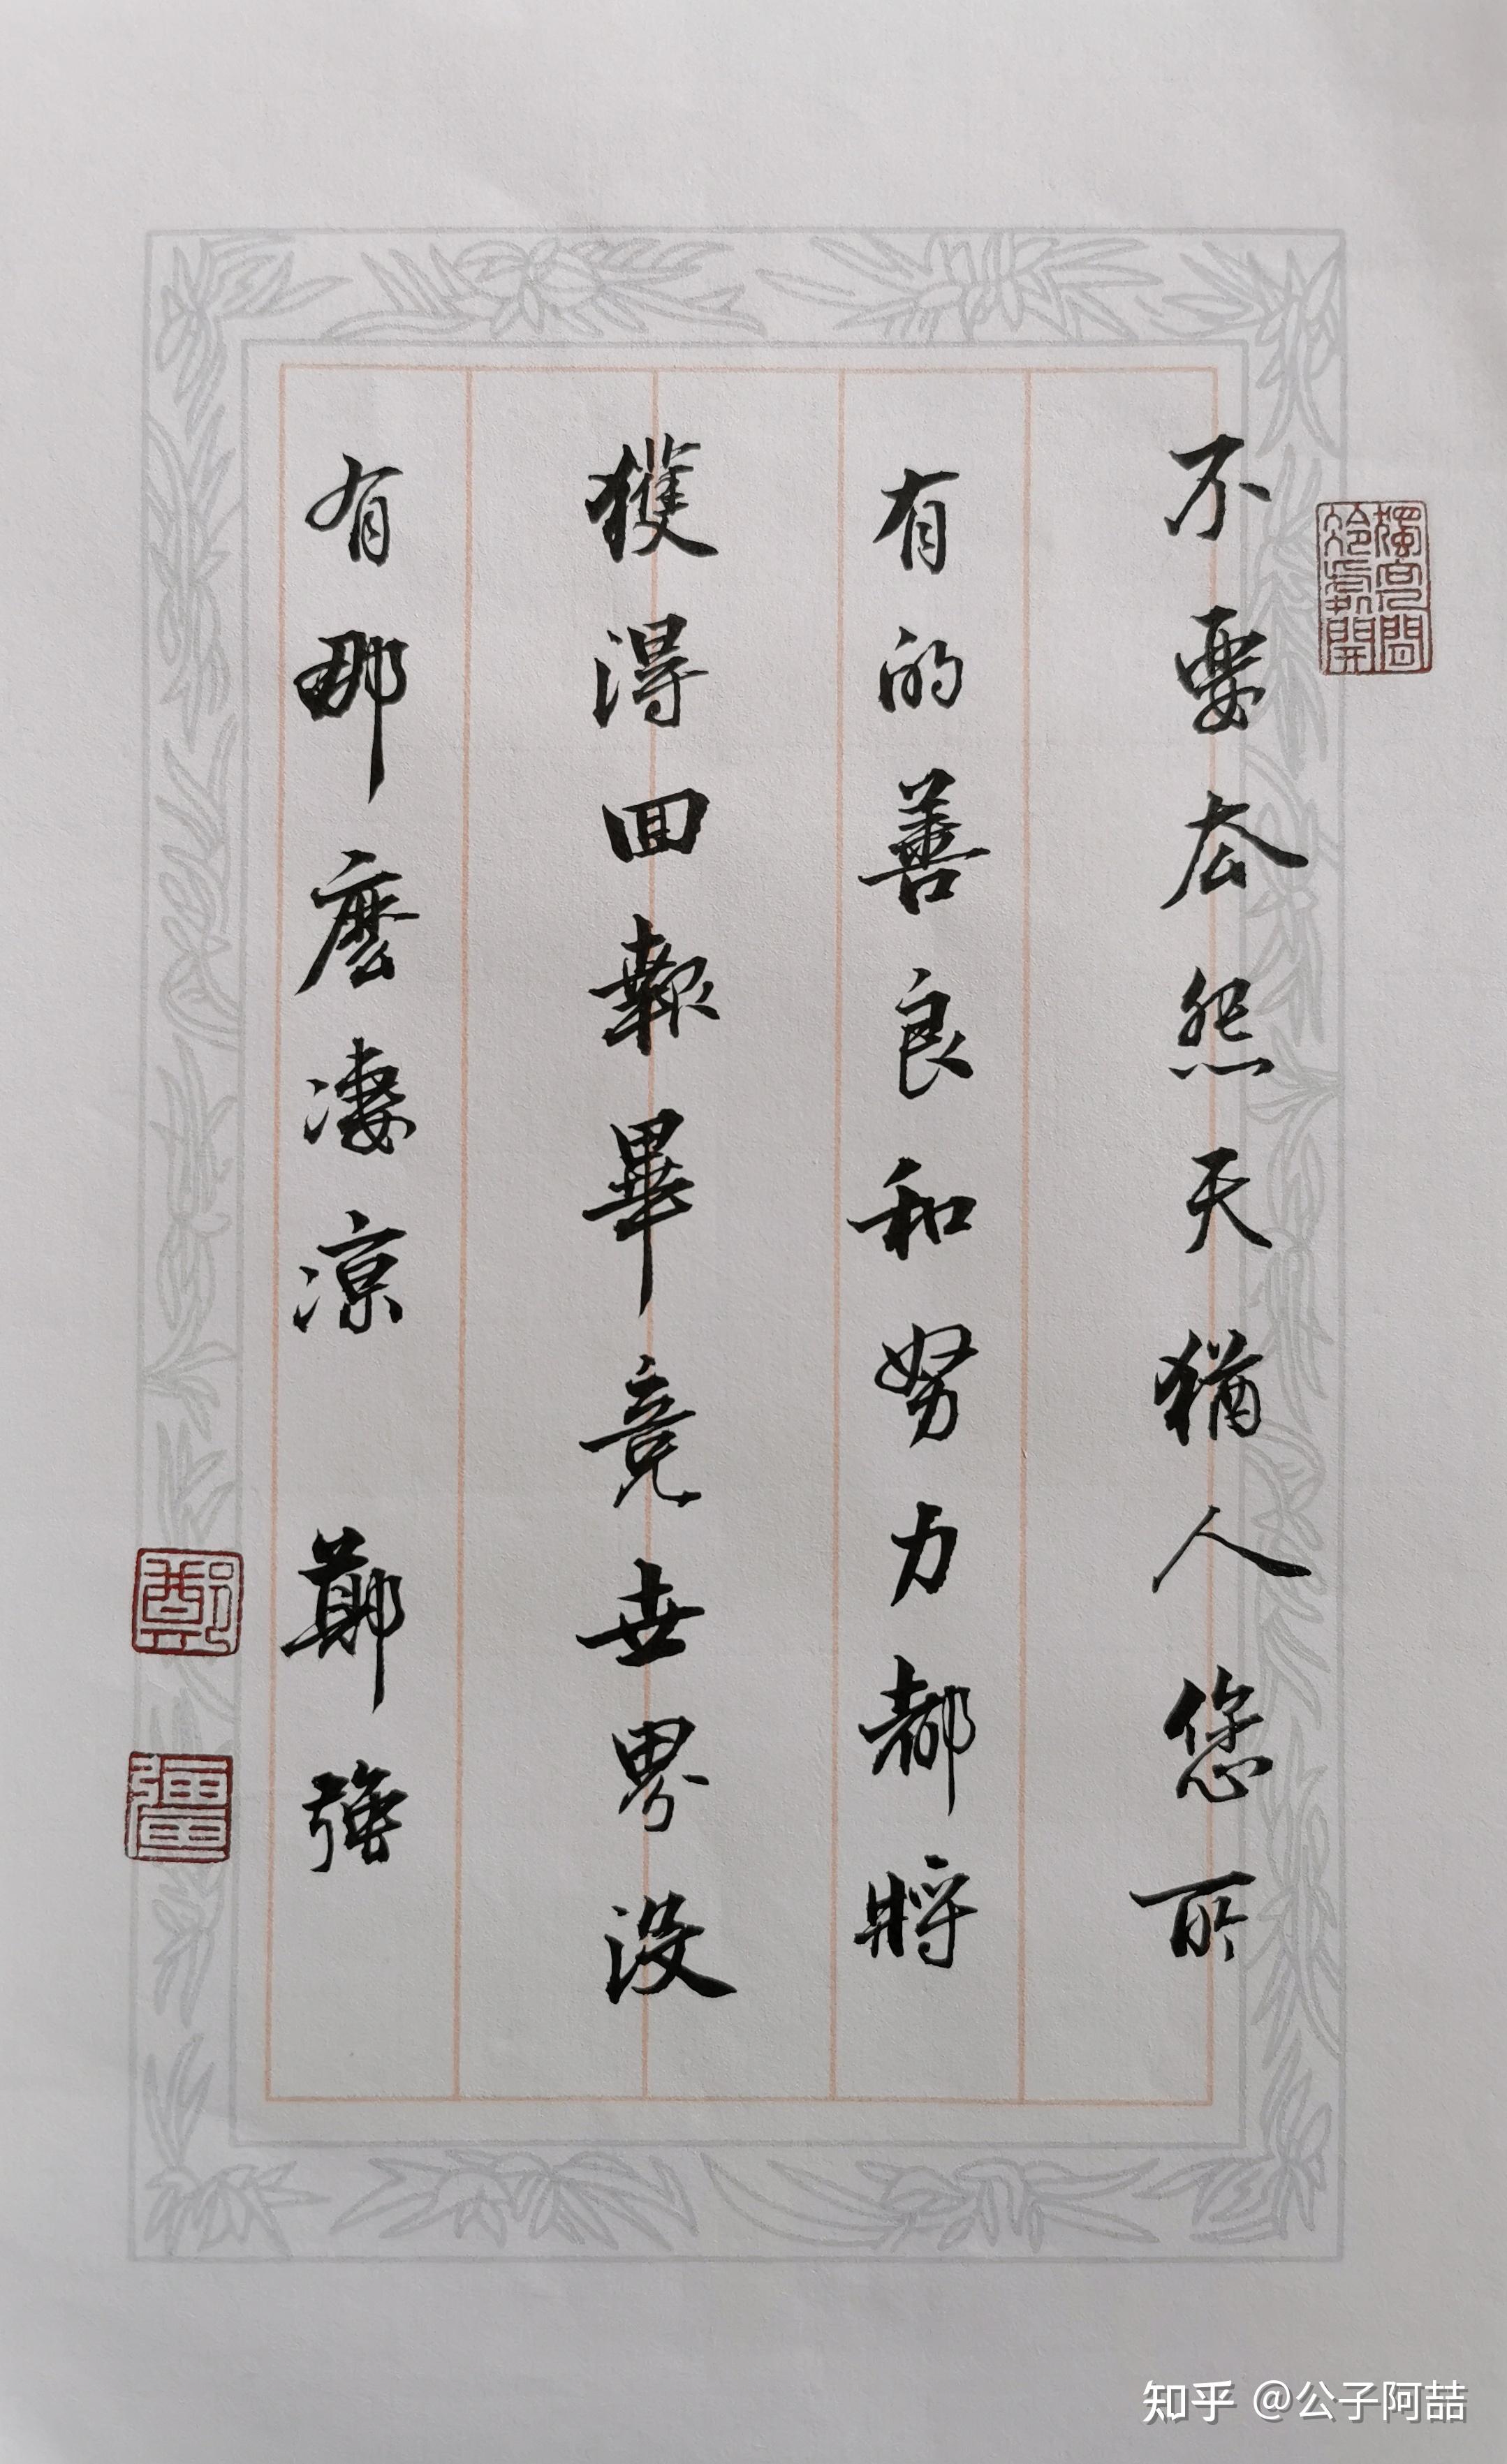 不要厺怨天猶人您所
有的善良和努力都將
獲得回報畢竟世界沒
有那麼凄凉 鄭強
鄭
彊
知乎 @公子阿喆